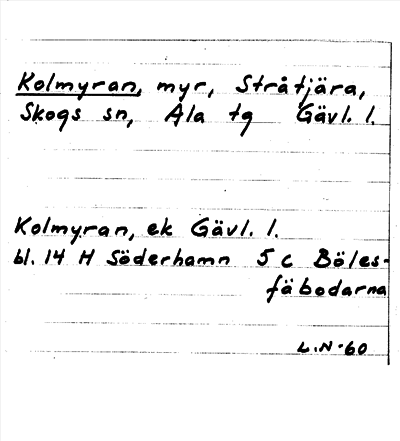 Kolmyran, myr, Stråtjära,
Skogs sn, Ala tg Gävl. l.
Kolmyran, ek Gävl. l.
bl. 14 H Söderhamn 5 c Böles-
fäbodarna
L.N-60